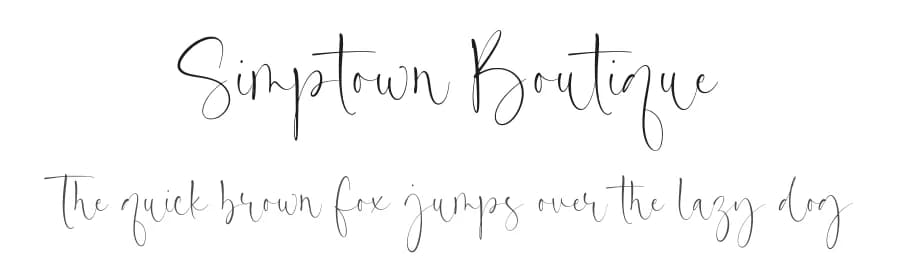 Simptown Boutique
The quick brown fox jumps over the lazy dog